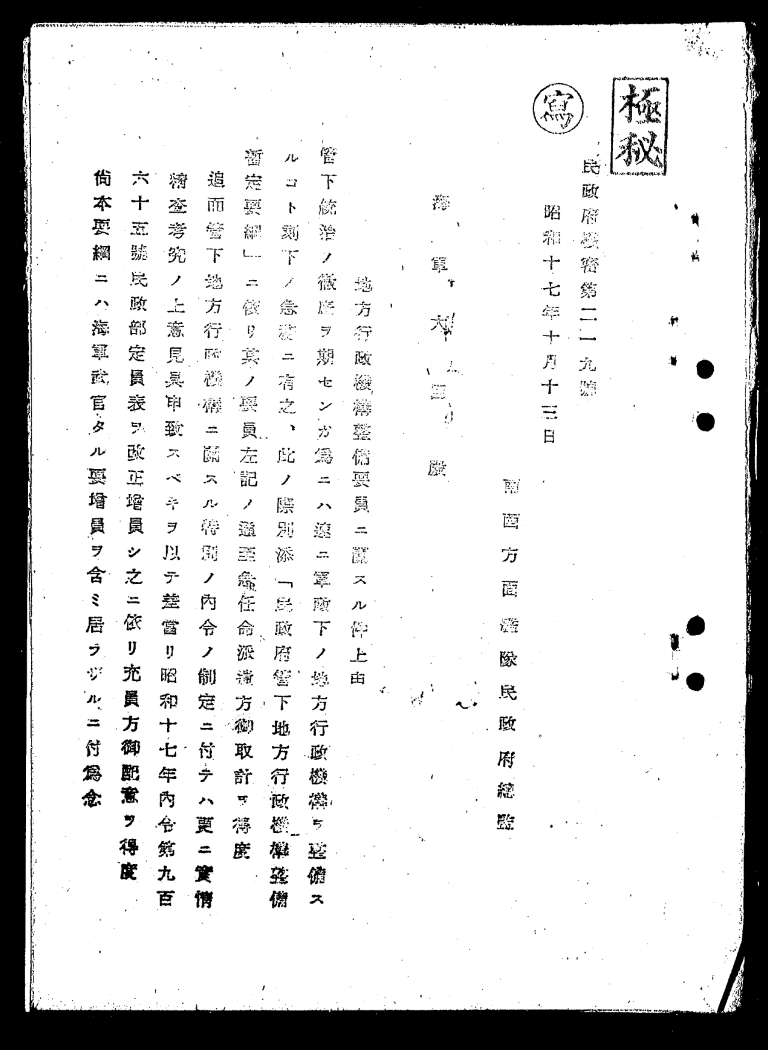 極秘
寫
民政府機密第二一九號
昭和十七年十月十三日
南西方面艦隊民政府總監
海軍大臣殿
地方行政機構整備要員ニ關スル件上申
管下統治ノ徹底ヲ期センガ爲ニハ速ニ軍政下ノ地方行政機構ヲ整備ス
ルコト刻下ノ急務ニ有之、此ノ際別添「民政府管下地方行政機構整備
暫定要綱」ニ依リ其ノ要員左記ノ通至急任命派遣方御取計ヲ得度
追而管下地方行政機構ニ關スル特別ノ內令ノ制定ニ付テハ更ニ實情
精查考究ノ上意見具申致スベキヲ以テ差當リ昭和十七年內令第九百
六十五號民政部定員表ヲ改正增員シ之ニ依リ充員方御配意ヲ得度
尙本要綱ニハ海軍武官タル要增員ヲ含ミ居ラザルニ付爲念